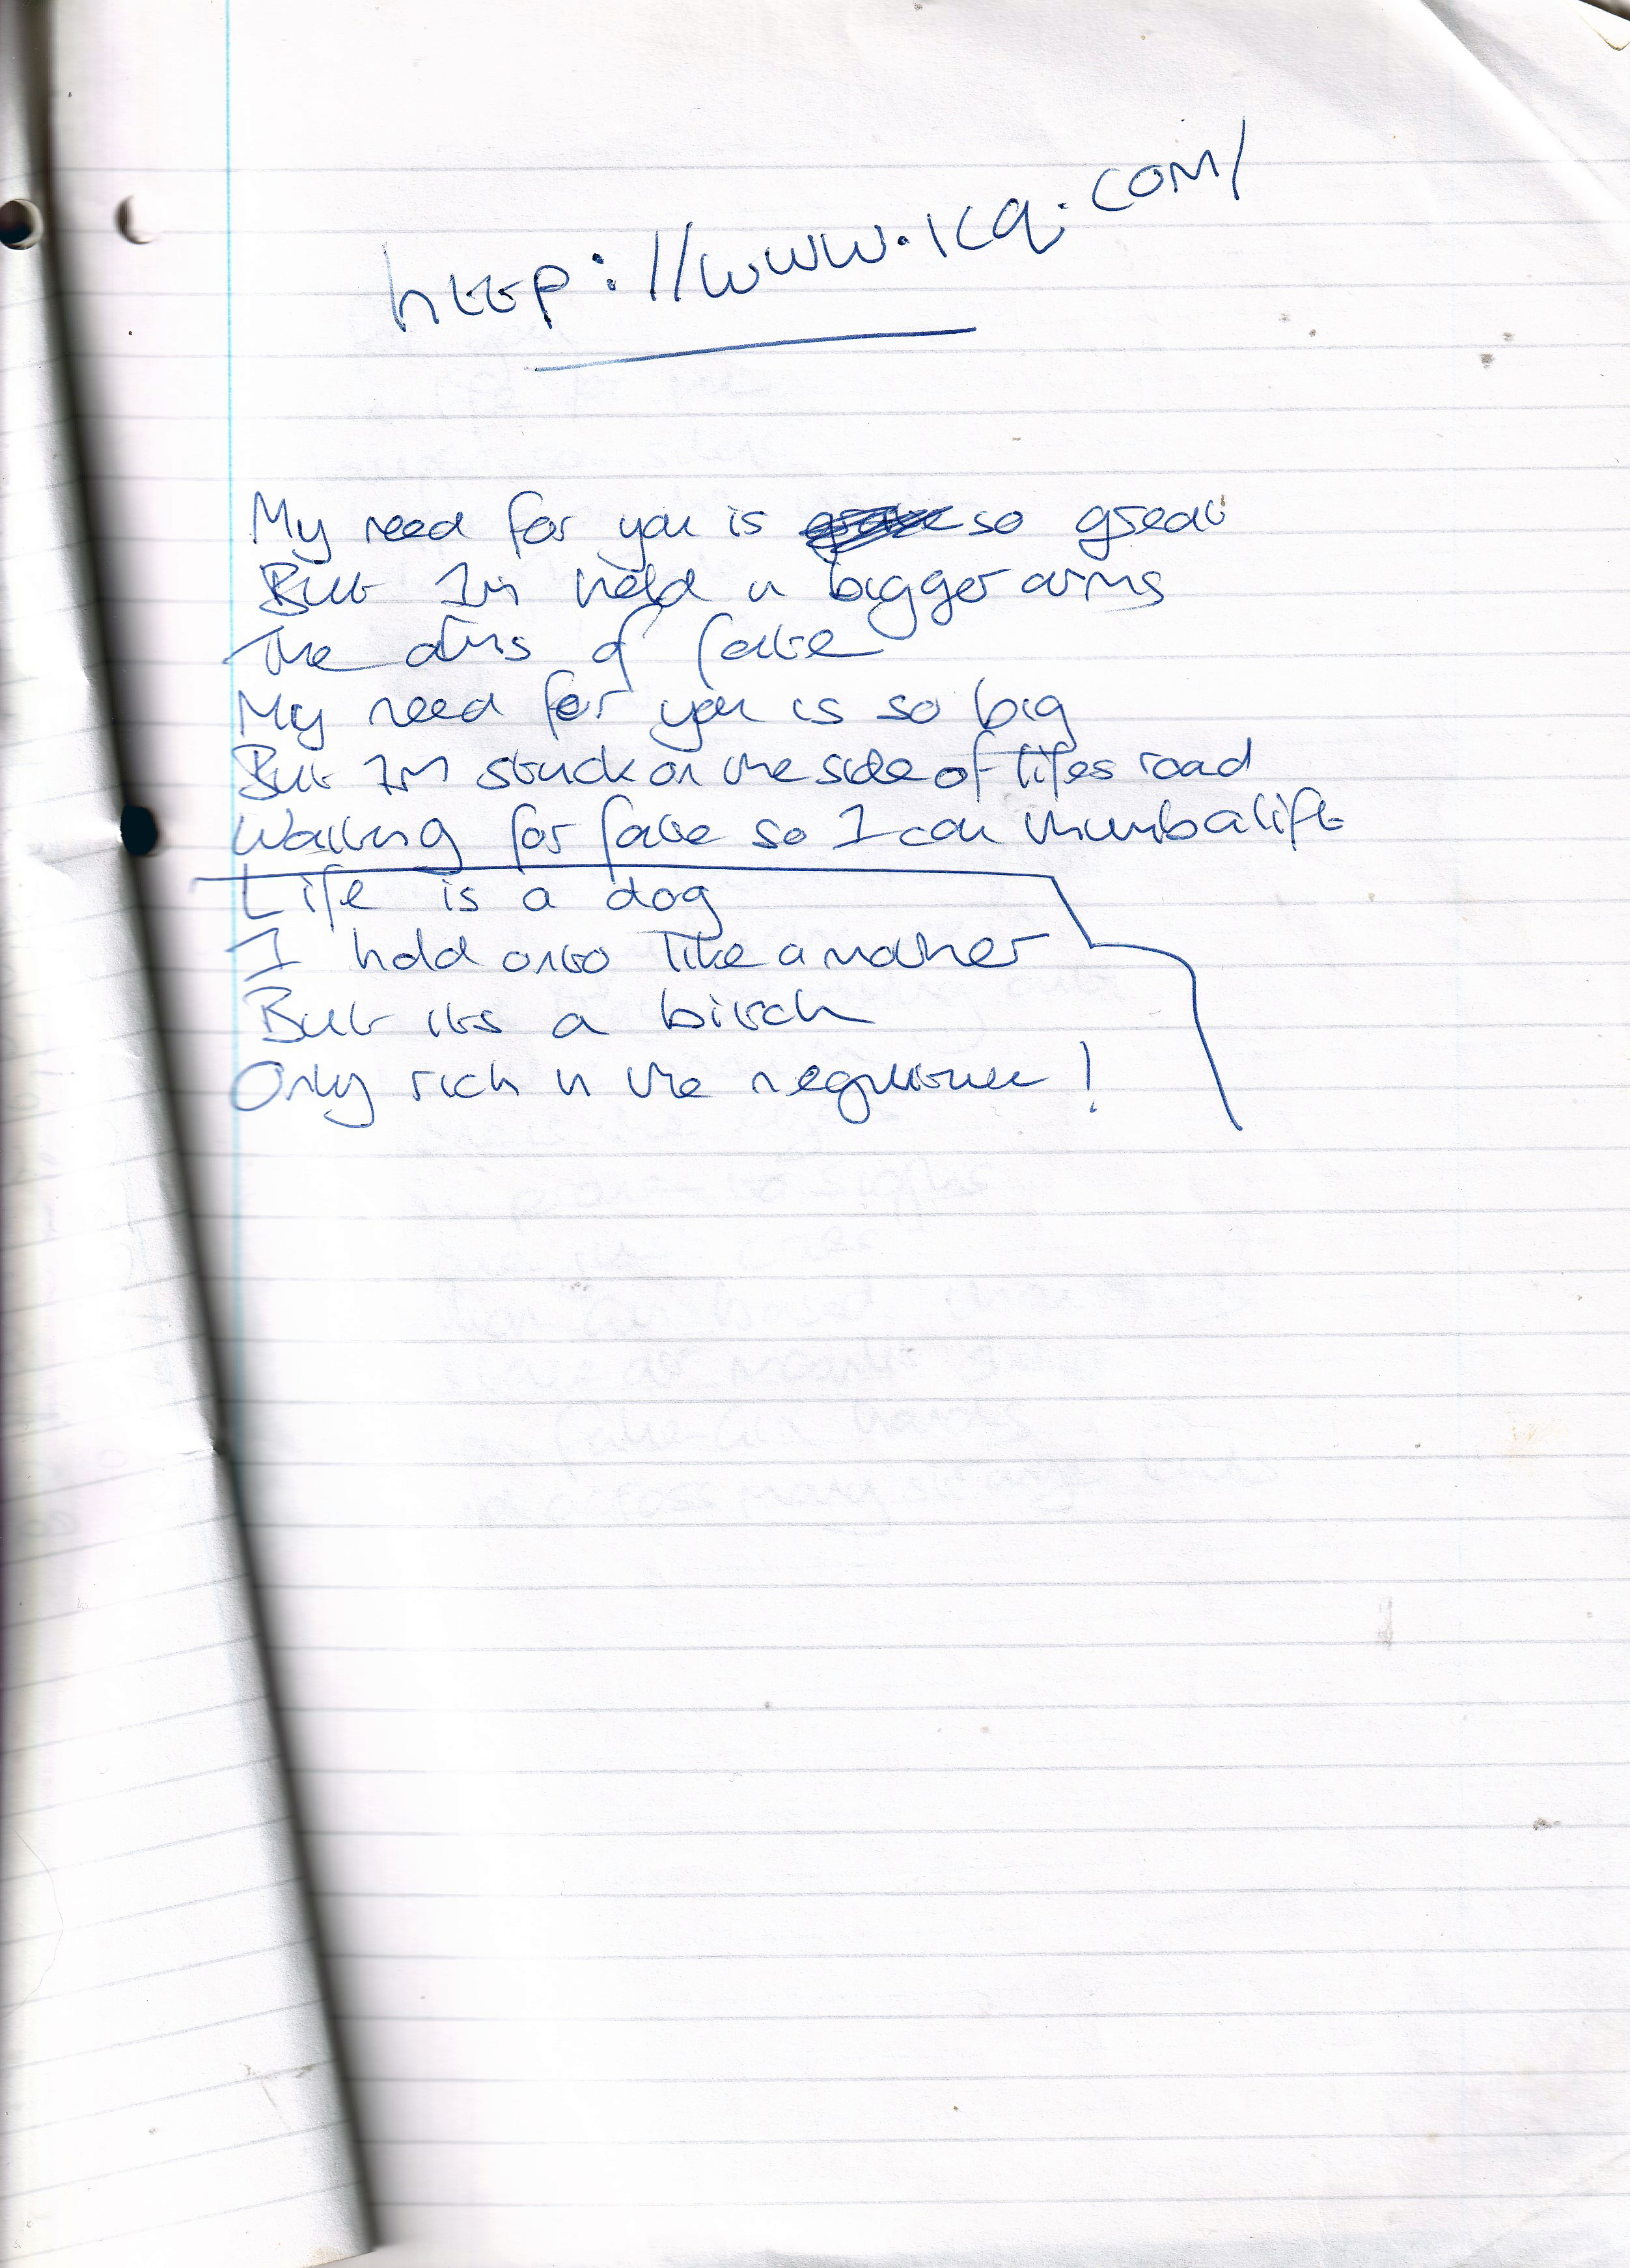 http://www.icq.com/
My need for you is so great
But Im held in bigger arms
The arms of fate
My need for you is so big
But Im stuck on the side of lifes road
Waiting for fate so I can thumb a lift
Life is a dog
I hold onto like a mother
But its a bitch
Only rich in the negative!